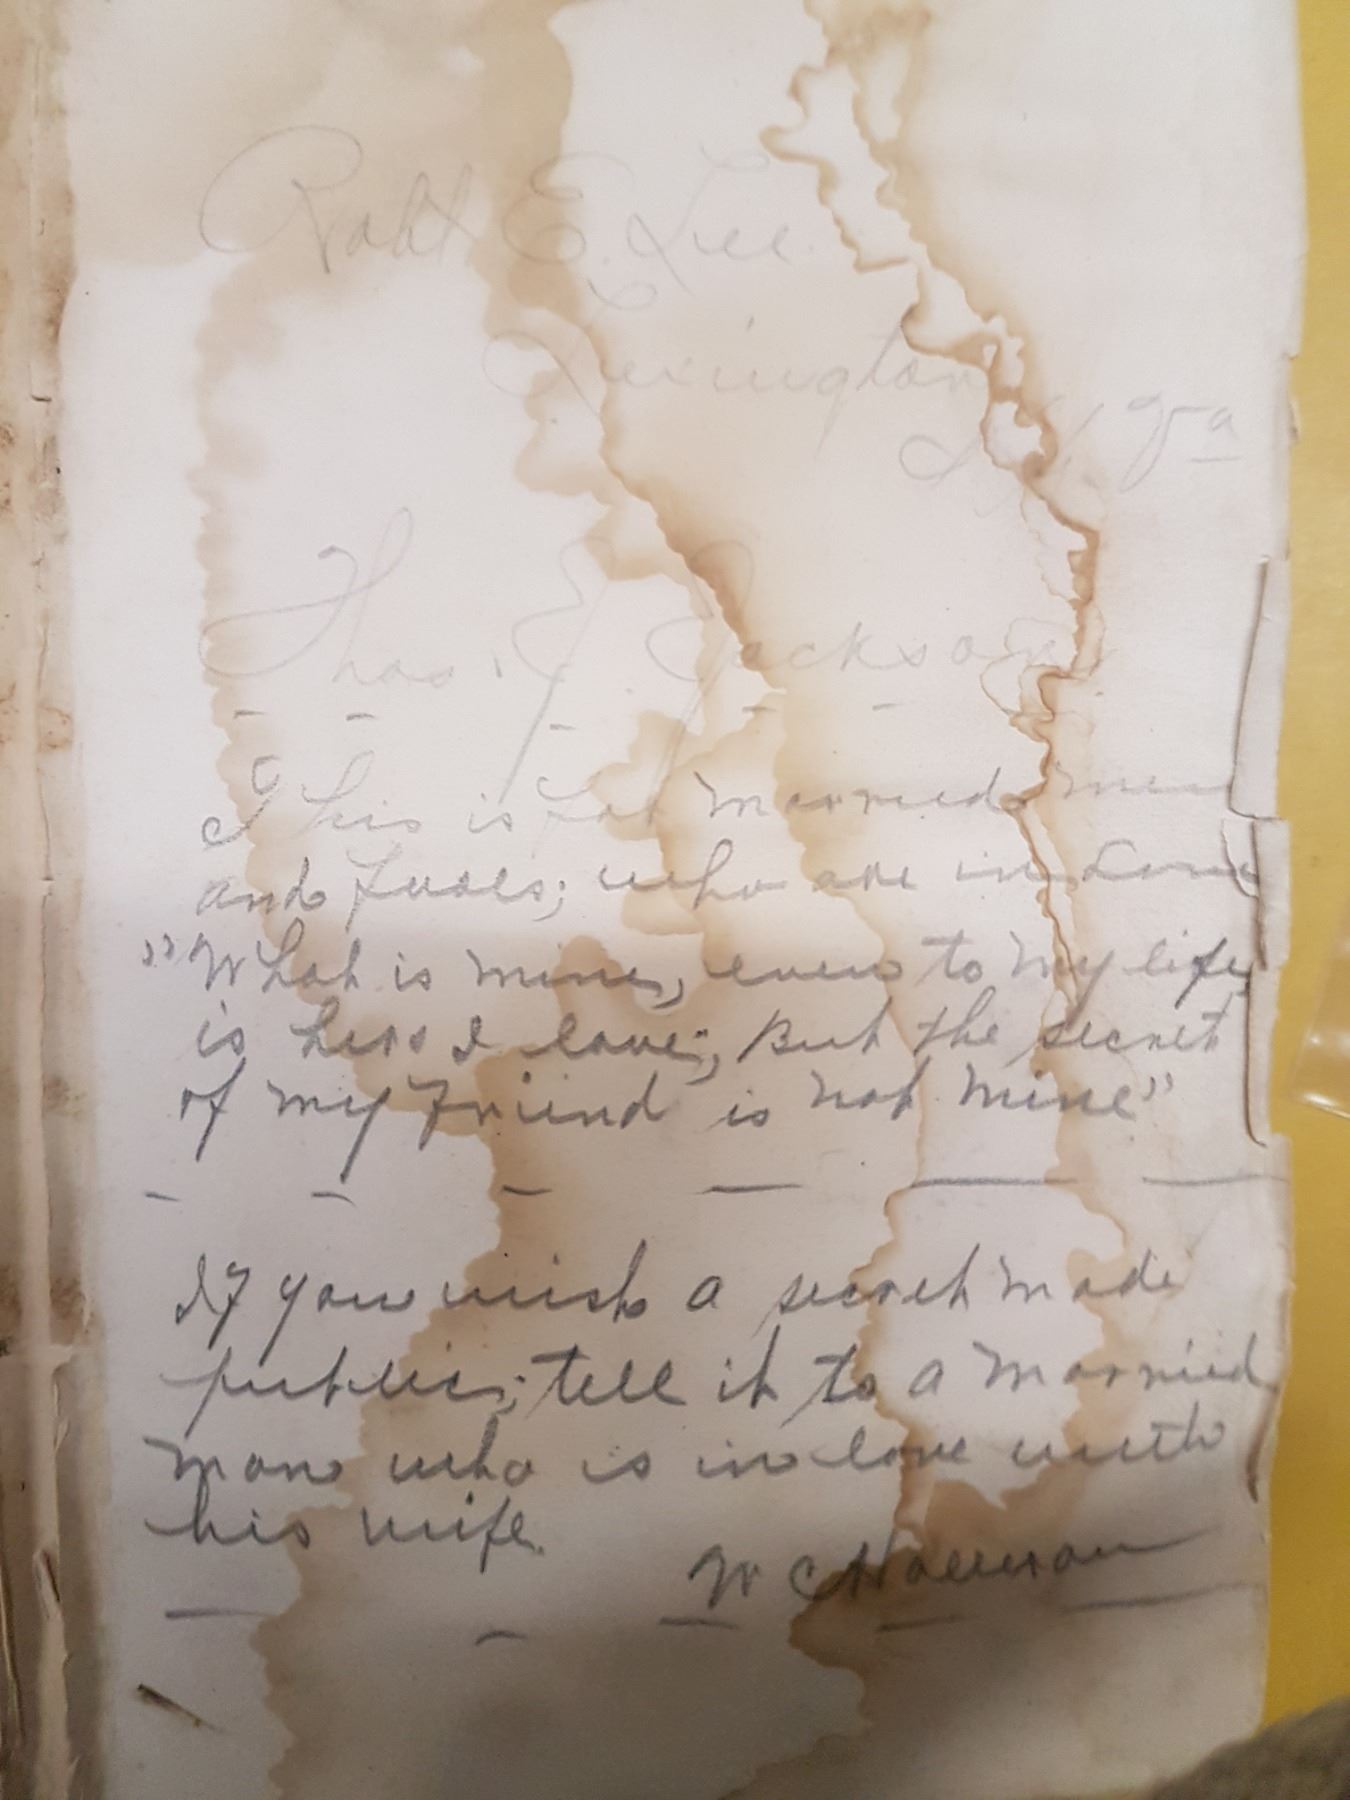 Robt. E. Lee
Lexington
Va
Thos. J. Jackson
This is for married men
and fools; who are in Love
"What is mine, even to my life
is hers I love; But the secret
of my friend is not mine"
If you wish a secret made
public; tell it to a married
man who is in love with
his wife.
W C